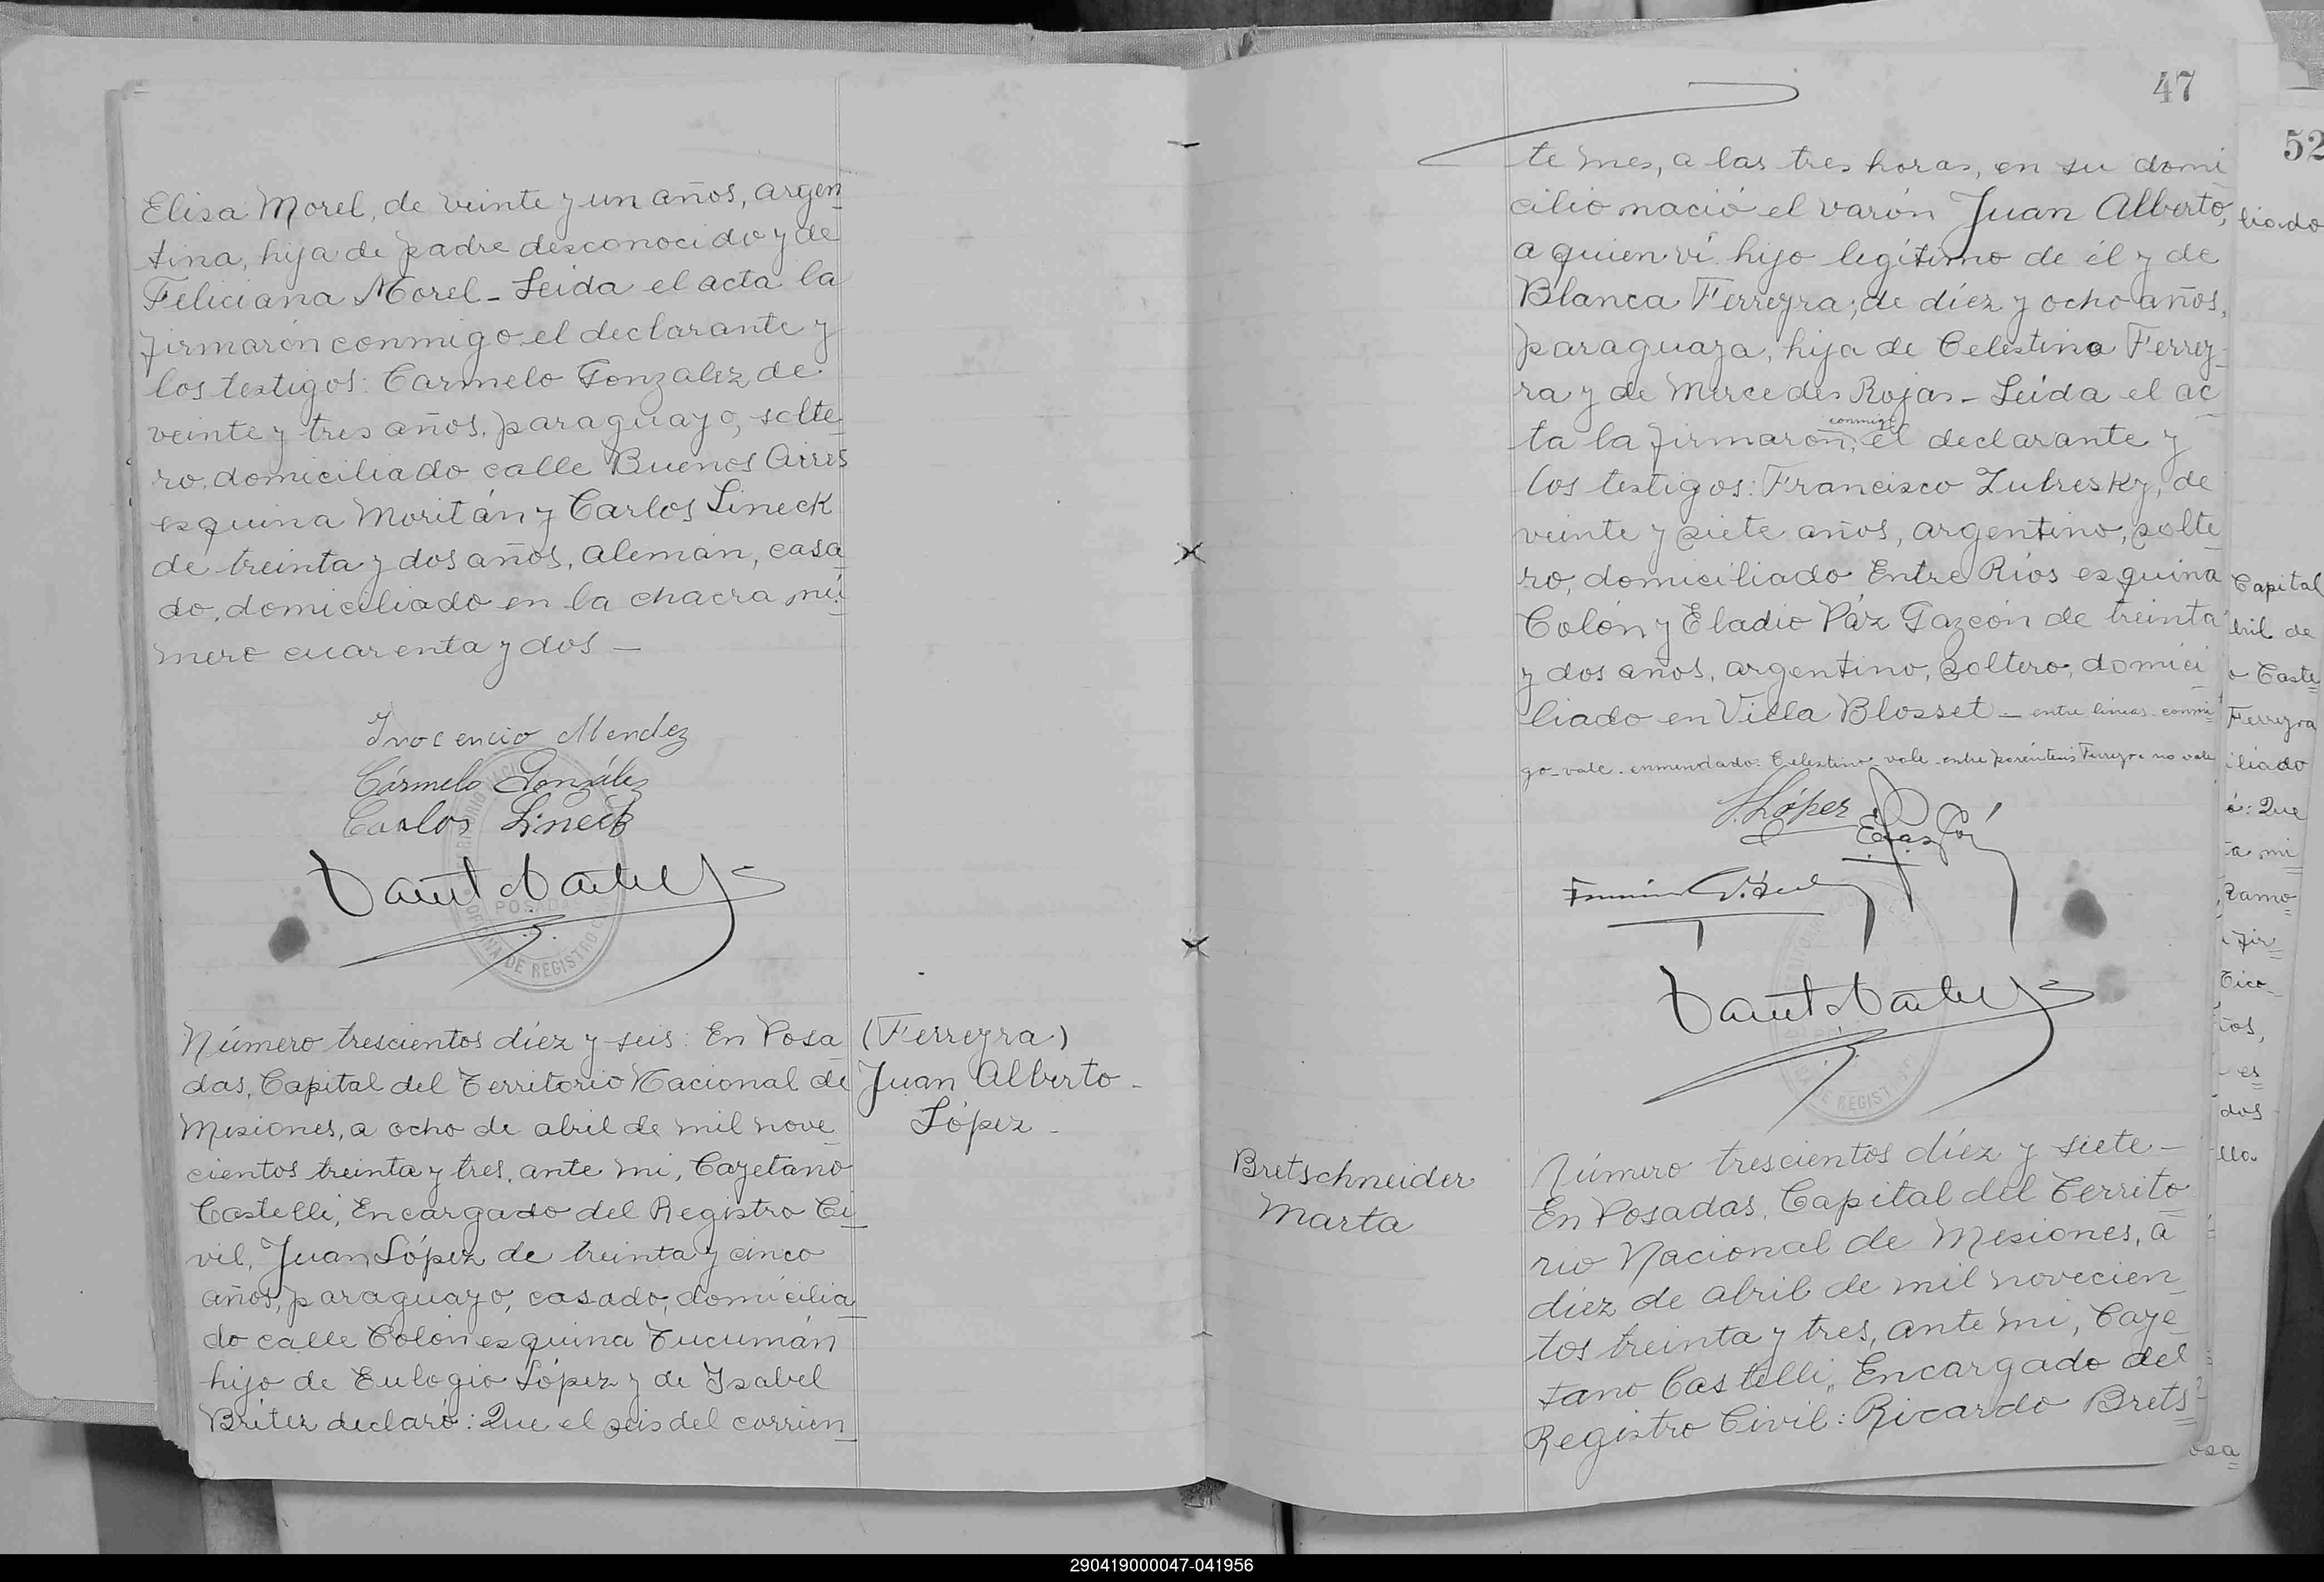 Elisa Morel, de veinte y un años, argen
tina, hija de padre desconocido y de
Feliciana Morel - Leida el acta la
firmaron conmigo el declarante y
los testigos: Carmelo Gonzalez de
veinte y tres años, paraguayo, solte
ro, domiciliado calle Buenos Aires
esquina Moritán y Carlos Lineck
de treinta y dos años, alemán, casa
do, domiciliado en la chacra nú
mero cuarenta y dos -
Inocencio Mendez
Cármelo González
Carlos Lineck
POSADAS
OFICINA DE REGISTRO
(Ferreyra)
Juan Alberto -
López -
Número trescientos diez y seis: En Posa
das, Capital del Territorio Nacional de
Misiones, a ocho de abril de mil nove
cientos treinta y tres, ante mi, Cayetano
Castelli, Encargado del Registro Ci
vil, Juan López de treinta y cinco
años, paraguayo, casado, domicilia
do calle Colón esquina Tucumán
hijo de Eulogio López y de Isabel
Briter declaró: Que el seis del corrien
47
te mes, a las tres horas, en su domi
cilio nació el varón Juan Alberto,
a quien vi hijo legítimo de él y de
Blanca Ferreyra, de diez y ocho años,
paraguaya, hija de Celestino Ferrey
ra y de Mercedes Rojas - Leida el ac
conmigo
ta la firmaron, el declarante y
los testigos: Francisco Zubresky, de
veinte y siete años, argentino, solte
ro, domiciliado Entre Ríos esquina
Colón y Eladio Páz Gazcón de treinta
y dos años, argentino, soltero, domici
liado en Villa Blosset - entre lineas - conmi
go - vale - enmendado: Celestino - vale - entre paréntesis Ferreyra no vale
J. López
Bretschneider
Marta
Número trescientos diez y siete -
En Posadas, Capital del Territo
rio Nacional de Misiones, a
diez de abril de mil novecien
tos treinta y tres, ante mi, Caye
tano Castelli, Encargado del
Registro Civil: Ricardo Brets
52
liado
Capital
bril de
o Caste
Ferreyra
iliado
ó: Que
a mi
Ramo
Fir
tos,
es
dos
lla.
osa
290419000047-041956